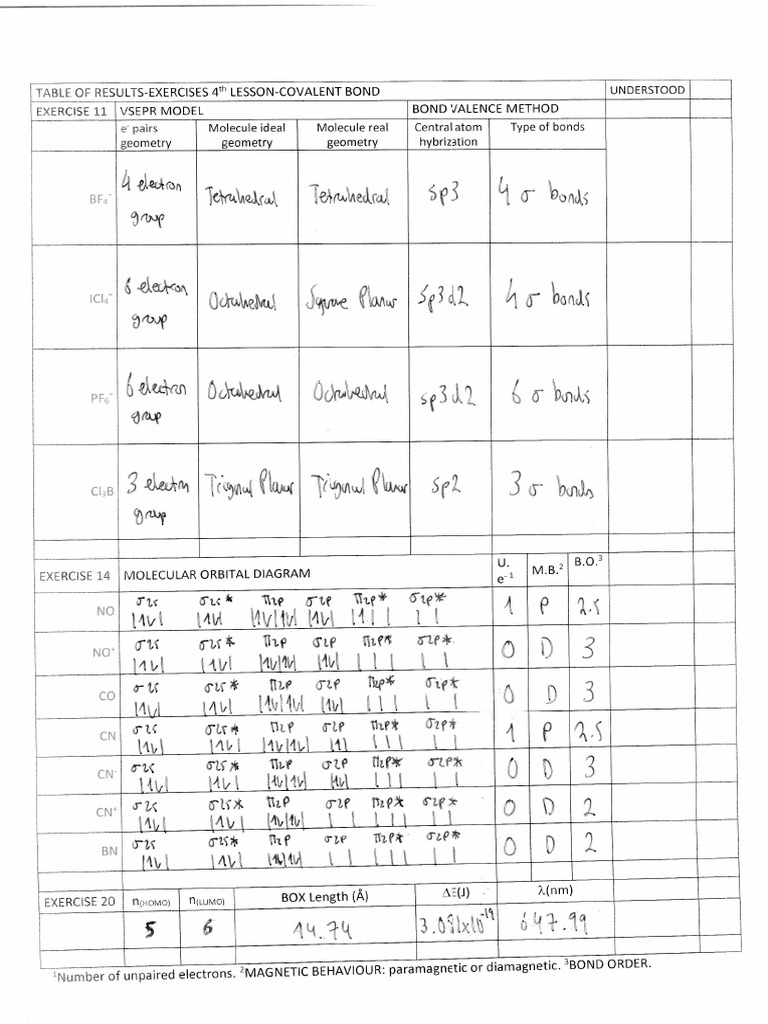 TABLE OF RESULTS-EXERCISES 4th LESSON-COVALENT BOND UNDERSTOOD
EXERCISE 11 VSEPR MODEL BOND VALENCE METHOD
e- pairs geometry Molecule ideal geometry Molecule real geometry Central atom hybrization Type of bonds
BF4- 4 electron group Tetrahedral Tetrahedral sp3 4 σ bonds
ICl4- 6 electron group Octahedral Square Planar sp3d2 4 σ bonds
PF6- 6 electron group Octahedral Octahedral sp3d2 6 σ bonds
Cl3B 3 electron group Trigonal Planar Trigonal Planar sp2 3 σ bonds
EXERCISE 14 MOLECULAR ORBITAL DIAGRAM U. e-1 M.B.2 B.O.3
NO σ2s σ2s* π2p σ2p π2p* σ2p* 1 P 2.5
|1v| |1v| |1v|1v| |1v| |1| | | |
NO+ σ2s σ2s* π2p σ2p π2p* σ2p* 0 D 3
|1v| |1v| |1v|1v| |1v| | | | | |
CO σ2s σ2s* π2p σ2p π2p* σ2p* 0 D 3
|1v| |1v| |1v|1v| |1v| | | | | |
CN σ2s σ2s* π2p σ2p π2p* σ2p* 1 P 2.5
|1v| |1v| |1v|1v| |1| | | | | |
CN- σ2s σ2s* π2p σ2p π2p* σ2p* 0 D 3
|1v| |1v| |1v|1v| |1v| | | | | |
CN+ σ2s σ2s* π2p σ2p π2p* σ2p* 0 D 2
|1v| |1v| |1v|1v| | | | | | | |
BN σ2s σ2s* π2p σ2p π2p* σ2p* 0 D 2
|1v| |1v| |1v|1v| | | | | | | |
EXERCISE 20 n(HOMO) n(LUMO) BOX Length (Å) ΔE(J) λ(nm)
5 6 14.74 3.081x10-19 647.99
1Number of unpaired electrons. 2MAGNETIC BEHAVIOUR: paramagnetic or diamagnetic. 3BOND ORDER.